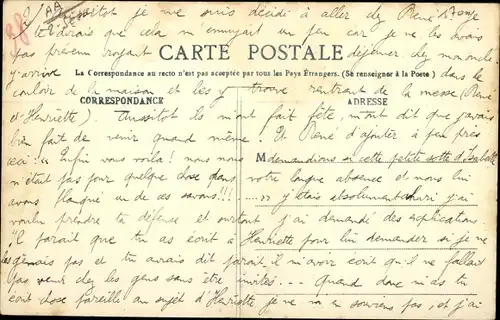 Aussitôt je me suis décidé à aller chez René
te dirais que cela m'ennuyait un peu car je ne les avais
pas prévenu croyant déjeuner chez mon oncle
CARTE POSTALE
La Correspondance au recto n'est pas acceptée par tous les Pays Étrangers. (Se renseigner à la Poste)
j'arrive dans le
couloir de la maison et les y trouve rentrant de la messe (René
CORRESPONDANCE
ADRESSE
et Henriette). Aussitôt ils m'ont fait fête, m'ont dit que j'avais
bien fait de venir quand même. Et René d'ajouter à peu près
M
ceci: " Enfin vous voilà! nous nous demandions si cette petite sotte d'Isabelle
n'était pas pour quelque chose dans votre longue absence et nous lui
avons flanqué un de ces savons!!! ..... " j'étais absolument ahuri j'ai
voulu prendre ta défense et surtout j'ai demandé des explications.
"Il paraît que tu as écrit à Henriette pour lui demander si je ne
les gênais pas et tu aurais dit paraît-il m'avoir écrit qu'il ne fallait
pas venir chez les gens sans être invités... — Quand donc m'as tu
écrit chose pareille au sujet d'Henriette je ne m'en souviens pas, et j'ai